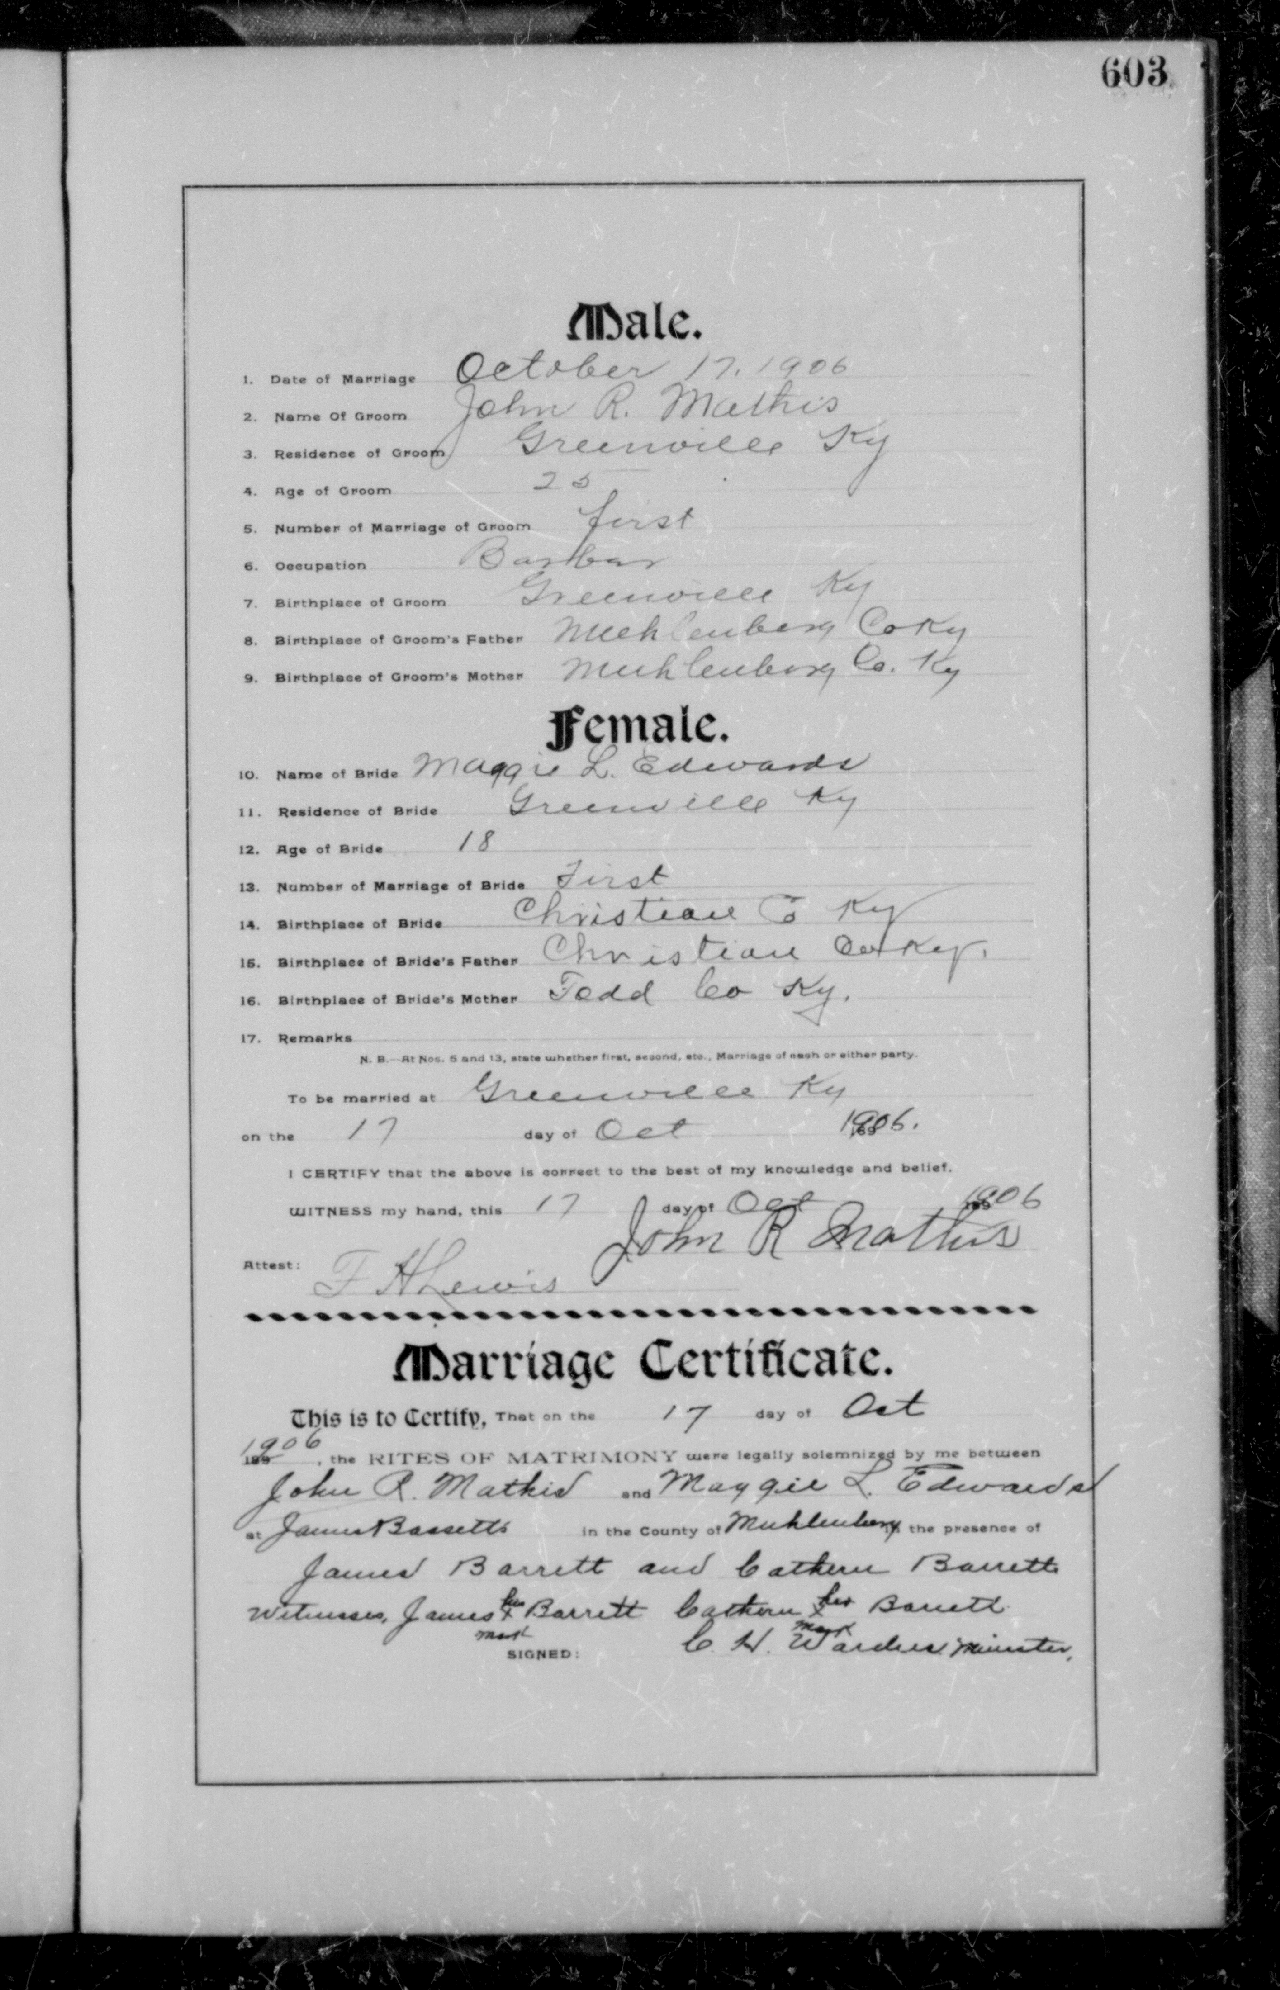 603
Male.
1. Date of Marriage October 17. 1906
2. Name Of Groom John R. Mathis
3. Residence of Groom Greenville Ky
4. Age of Groom 25
5. Number of Marriage of Groom first
6. Occupation Barbar
7. Birthplace of Groom Greenville Ky
8. Birthplace of Groom's Father Muehlenberg Co Ky
9. Birthplace of Groom's Mother Muhlenberg Co. Ky
Female.
10. Name of Bride Maggie L. Edwards
11. Residence of Bride Greenville Ky
12. Age of Bride 18
13. Number of Marriage of Bride First
14. Birthplace of Bride Christian Co Ky
15. Birthplace of Bride's Father Christian Co Ky.
16. Birthplace of Bride's Mother Todd Co Ky.
17. Remarks
N. B.—At Nos. 5 and 13, state whether first, second, etc., Marriage of each or either party.
To be married at Greenville Ky
on the 17 day of Oct 1906.
I CERTIFY that the above is correct to the best of my knowledge and belief.
WITNESS my hand, this 17 day of Oct 1906
John R Mathis
Attest: F H Lewis
Marriage Certificate.
This is to Certify, That on the 17 day of Oct
1906, the RITES OF MATRIMONY were legally solemnized by me between
John R. Mathis and Maggie L. Edwards
at James Bassetts in the County of Muhlenberg in the presence of
James Barrett and Cathern Barrett
Witnesses, James his x mark Barrett Cathern her x mark Barrett
SIGNED: C. H. Minister.